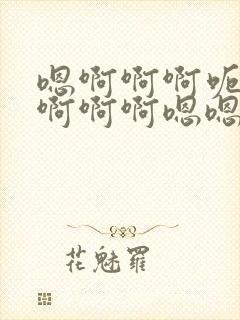 嗯啊啊啊呃
啊啊啊嗯嗯
花魅羅